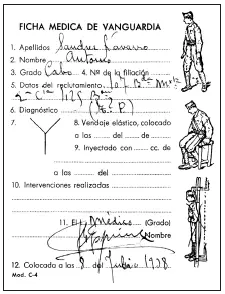 FICHA MEDICA DE VANGUARDIA
1. Apellidos Sanchez Navarro
2. Nombre Antonio
3. Grado Cabo 4. Nº de la filiación
5. Datos del reclutamiento 107 Bda Mxta
2ª Cia 425 Bon
6. Diagnóstico
7. 8. Vendaje elástico, colocado
a las del de
9. Inyectado con cc. de
a las del
10. Intervenciones realizadas
11. El Médico (Grado)
Nombre
12. Colocado a las 8 del Julio 1938
Mod. C-4